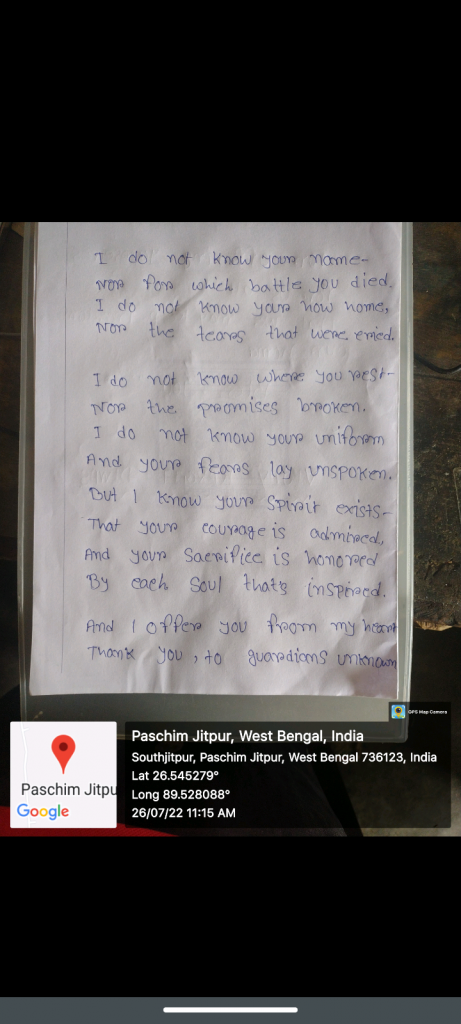 I do not know your name-
Nor for which battle you died.
I do not know your now home,
Nor the tears that were cried.
I do not know where you rest-
Nor the promises broken.
I do not know your uniform
And your fears lay unspoken.
But I know your spirit exists-
That your courage is admired,
And your Sacrifice is honored
By each Soul that's inspired.
And I offer you from my heart
Thank you, to guardians unknown
GPS Map Camera
Paschim Jitpur, West Bengal, India
Southjitpur, Paschim Jitpur, West Bengal 736123, India
Lat 26.545279°
Long 89.528088°
26/07/22 11:15 AM
Paschim Jitpu
Google